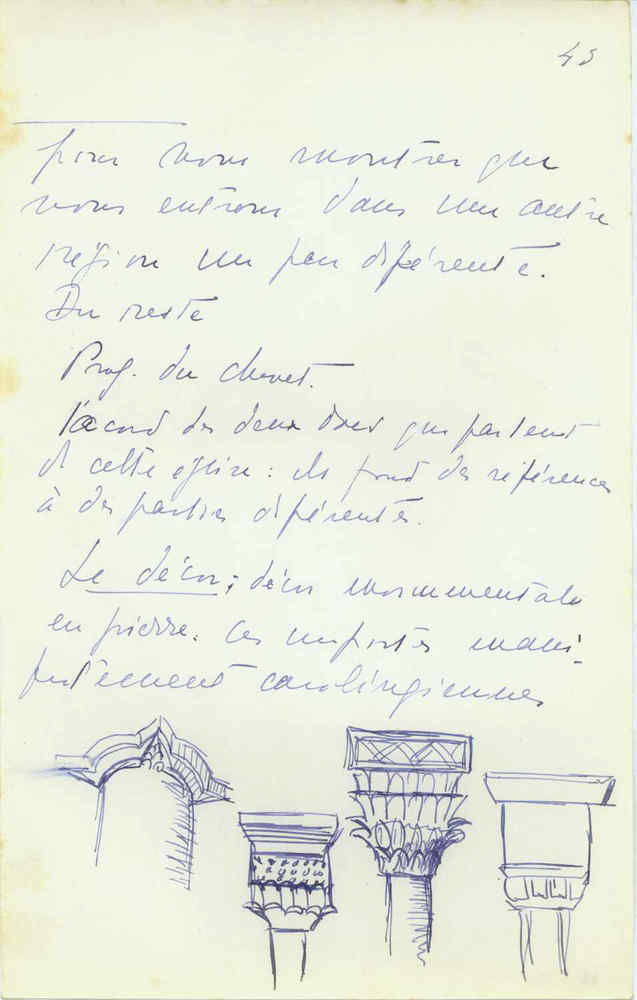 43
pour nous montrer que
nous entrons dans une autre
région un peu différente.
Du reste
Prog. du chevet.
l'acord des deux que parlent
de cette église : ils font des références
à des parties différentes.
Le décor : décor monumentale
en pierre. Ces mani-
festement carolingiennes